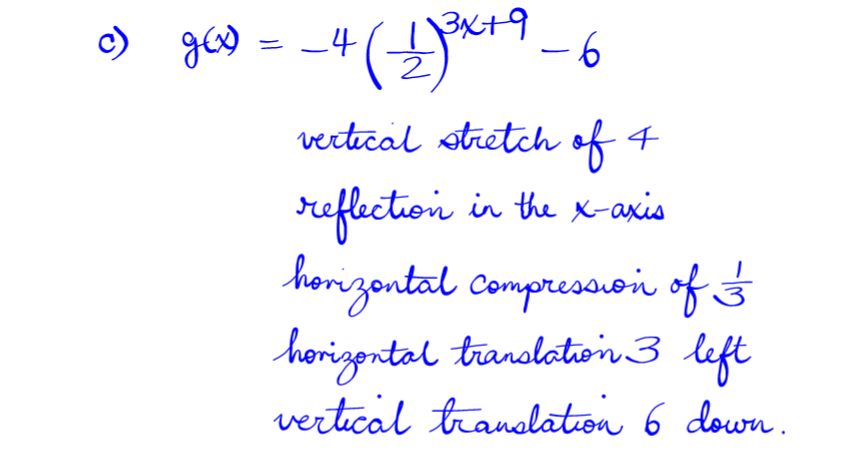 c) g(x) = -4(1/2)^{3x+9} - 6
vertical stretch of 4
reflection in the x-axis
horizontal compression of 1/3
horizontal translation 3 left
vertical translation 6 down.